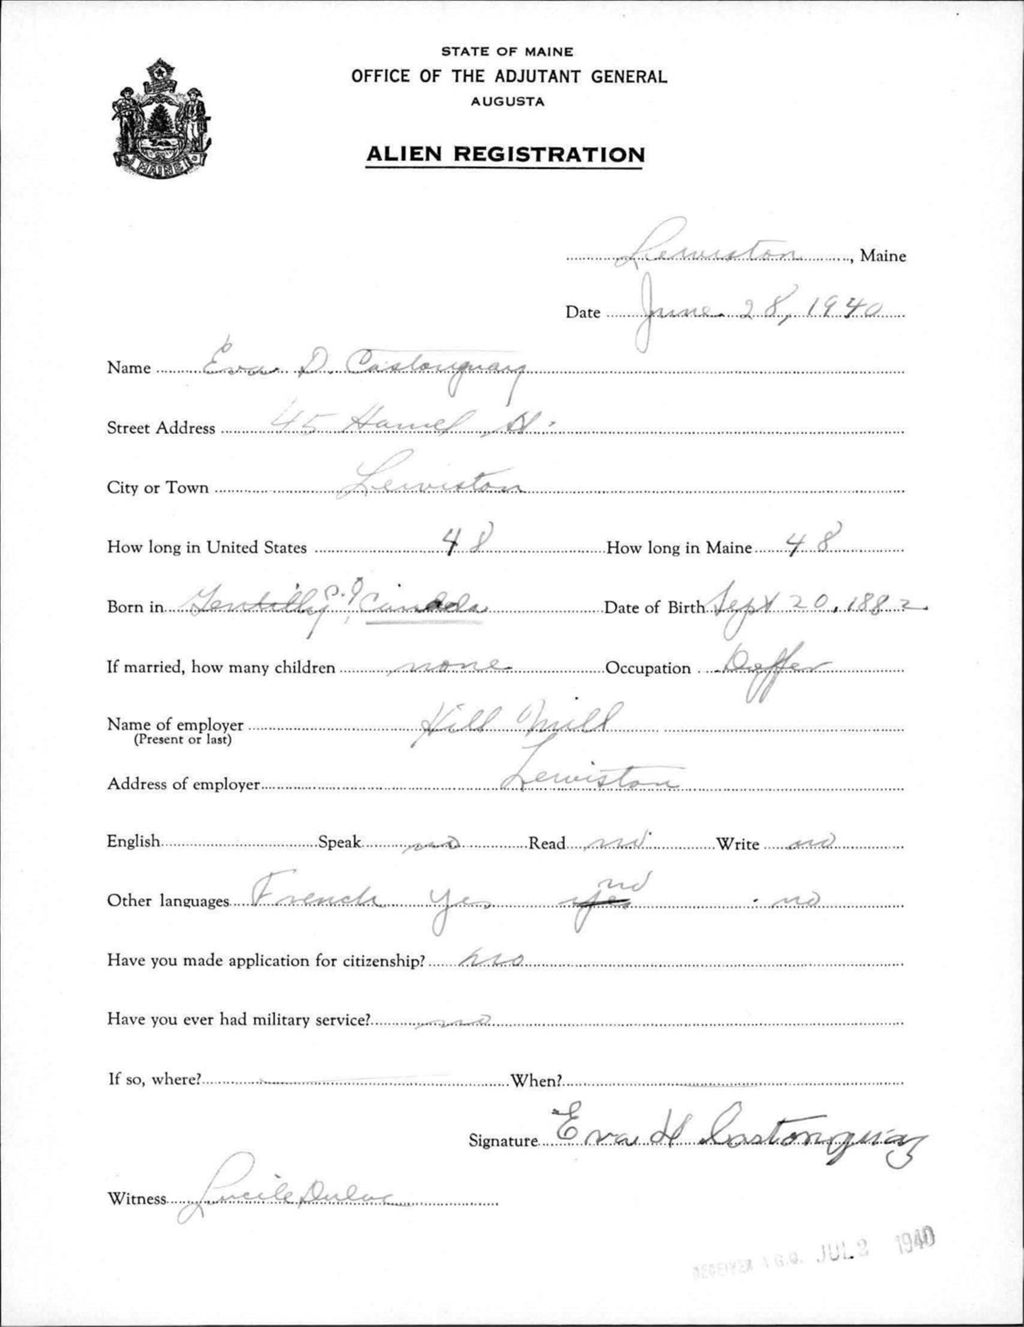 STATE OF MAINE
OFFICE OF THE ADJUTANT GENERAL
AUGUSTA
ALIEN REGISTRATION
MAINE
Lewiston, Maine
Date June 28, 1940
Name Eva D. Castonguay
Street Address 45 Hamel St.
City or Town Lewiston
How long in United States 48 How long in Maine 48
Born in Gentilly P.Q. Canada Date of Birth Sept 20, 1882
If married, how many children none Occupation Doffer
Name of employer Hill Mill
(Present or last)
Address of employer Lewiston
English Speak no Read no Write no
Other languages French yes no yes no
Have you made application for citizenship? no
Have you ever had military service? no
If so, where? When?
Signature Eva D Castonguay
Witness Lucile Dulac
RECEIVED A.G.O. JUL 2 1940